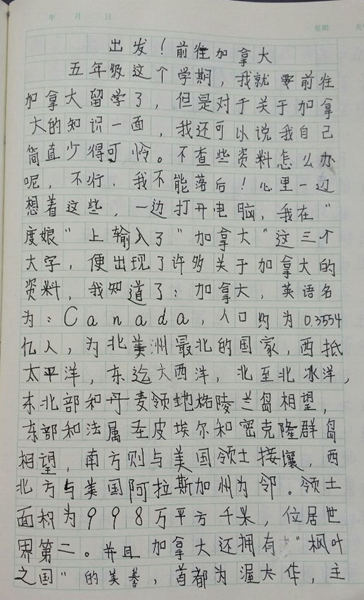 年 月 日
出发！前往加拿大
五年级这个学期，我就要前往
加拿大留学了，但是对于关于加拿
大的知识一面，我还可以说我自己
简直少得可怜。不查些资料怎么办
呢，不行，我不能落后！心里一边
想着这些，一边打开电脑，我在“
度娘”上输入了“加拿大”这三个
大字，便出现了许多关于加拿大的
资料，我知道了：加拿大，英语名
为：Canada，人口约为0.3554
亿人，为北美洲最北的国家，西抵
太平洋，东迄大西洋，北至北冰洋，
东北部和丹麦领地格陵兰岛相望，
东部和法属圣皮埃尔和密克隆群岛
相望，南方则与美国领土接壤，西
北方与美国阿拉斯加州为邻。领土
面积为998万平方千米，位居世
界第二。并且加拿大还拥有“枫叶
之国”的美誉，首都为渥太华，主